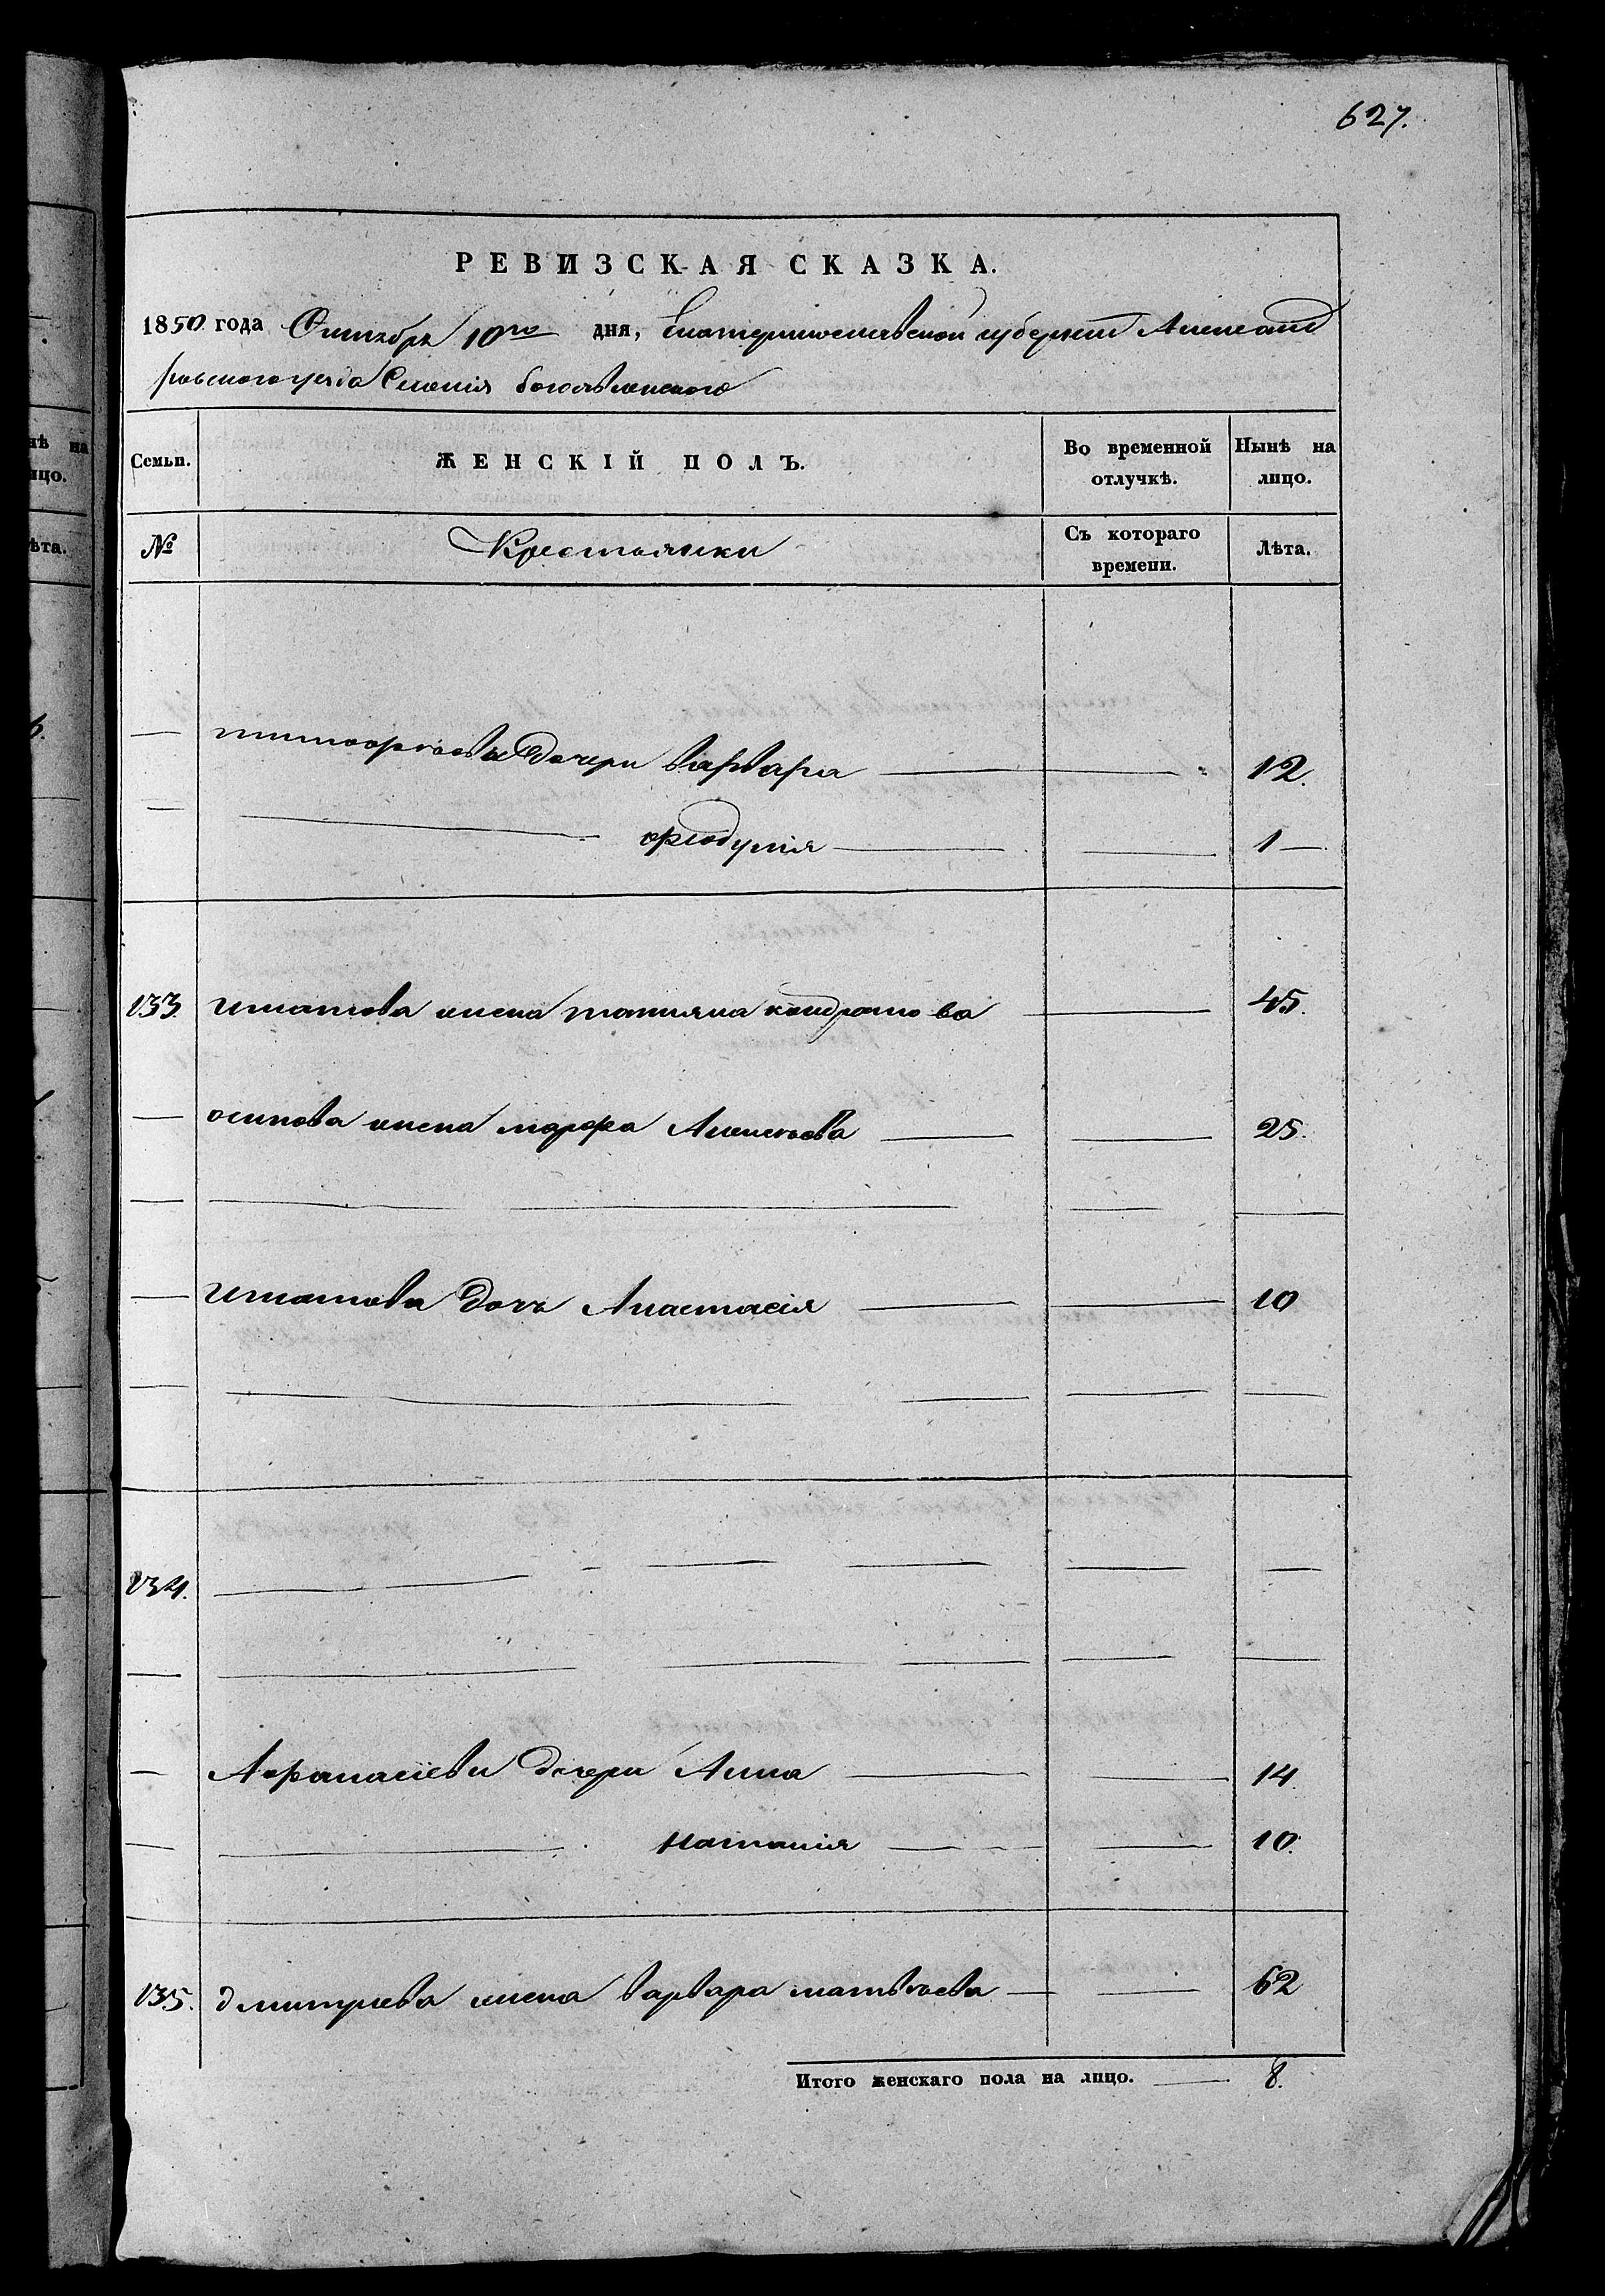 627.
РЕВИЗСКАЯ СКАЗКА.
1850 года Октября 10го дня, Екатеринославской губернии Александ
ровского уезда Селенія Богоявленского
Семьи.
ЖЕНСКІЙ ПОЛЪ.
Во временной отлучкѣ.
Нынѣ на лицо.
№
Крестьянки
Съ котораго времени.
Лѣта.
— тимофѣевы дочери варвара — — 12.
— — Феодулія — — 1 —
133 игнатова жена татияна кондратова — 45.
— осипова жена марфа Алексѣева — — 25.
— — — — —
— игнатова дочь Анастасія — — 10
— — — — —
134. — — — — — —
— — — — — —
— Афанасіевы дочери Анна — — 14.
— — наталія — — 10.
135. дмитриева жена варвара матвѣева — — 62
Итого женскаго пола на лицо. — 8.
нѣ на
ицо.
ѣта.